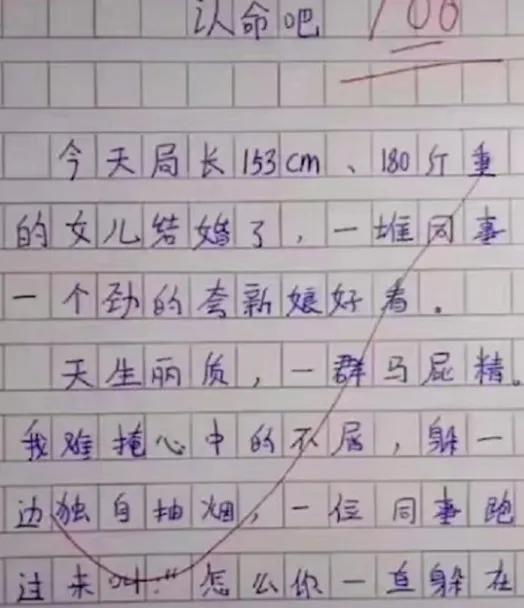 认命吧 100
今天局长153cm、180斤重
的女儿结婚了，一堆同事
一个劲的夸新娘好看.
天生丽质，一群马屁精。
我难掩心中的不屑，躲一
边独自抽烟，一位同事跑
过来叫:“怎么你一直躲在